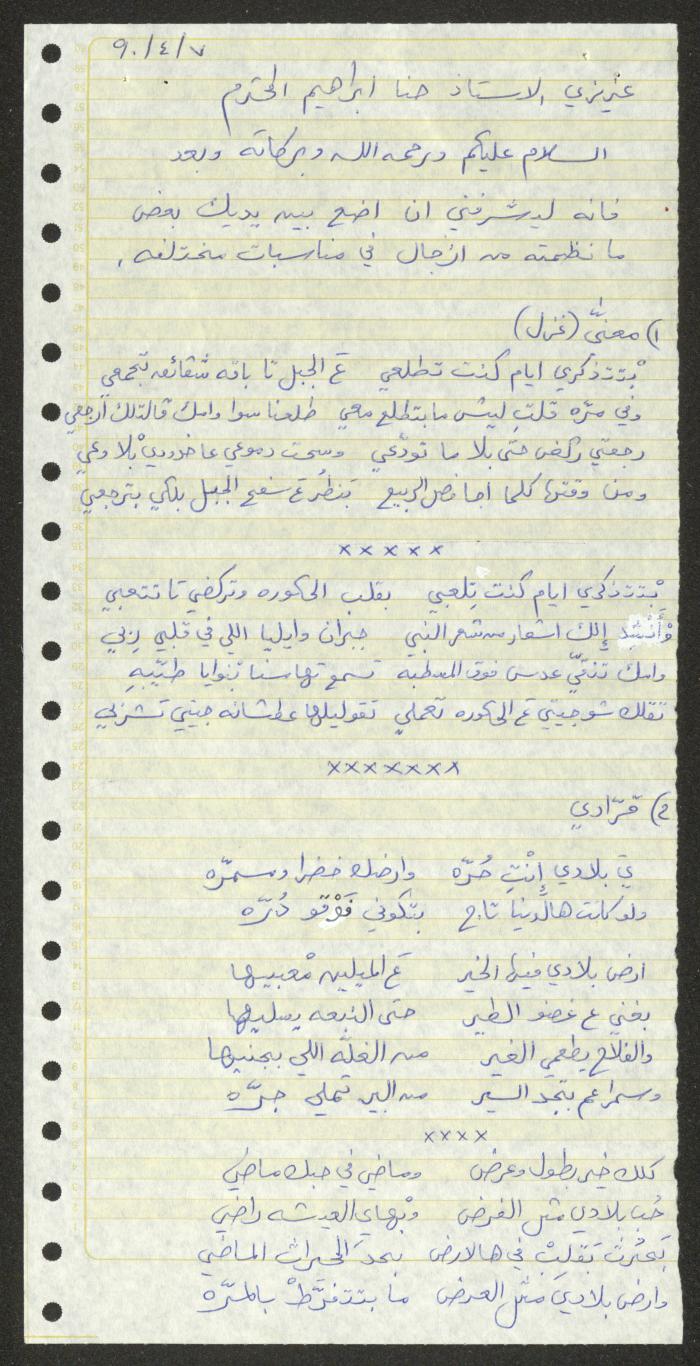 ٩٠/٤/٧
عزيزي الاستاذ حنا ابراهيم المحترم
السلام عليكم ورحمة الله وبركاته وبعد
فانه ليشرفني ان اضع بين يديك بعض
ما نظمته من ازجال في مناسبات مختلفه.
١) معنّى (غزل)
بْتتذكري ايام كنت تطلعي عَ الجبل تا باقة شقائق تجمعي
وفي مرّه قلتِ ليش ما بتطلع معي طلعنا سوا وامك قالتلك ارجعي
رجعتي ركض حتى بلا ما تودّعي وسحّت دموعي عا خدودي بْلا وعي
ومن وقتها كلما اجا فصل الربيع بَنطُر عَ سفح الجبل بلكي بترجعي
×××××
بْتتذكري ايام كنت تِلعبي بقلب الحاكوره وتركضي تا تتعبي
وأَنْشِد إلك اشعار من شعر النبي جبران وايليا اللي في قلبي رِبي
وامك تنقّي عدس فوق المصطبه تسمع تهامسنا بْنوايا طيّبه
تقلك شو جيتي عَ الحاكوره تعملي تقوليلها عطشانه جيتي تشربي
×××××××
٢) قرّادي
يَ بلادي إنْتِ حُرّه وارضك خضرا ومسمرّه
ولو كانت هالدنيا تاج بتكوني فَوْقو دُرّه
ارض بلادي فيها الخير عَ الميلين مْعبيها
بغني ع غصنو الطير حتى النبعه يسليها
والفلاح يطعمي الغير من الغلّه اللي بيجنيها
وسمرا عم بتجد السير من البير تملي جرّه
××××
كلك خير بطول وعرض وماضي في حبك ماضي
حُب بلادي مثل الفرض وبْهاي العيشه راضي
بَحْرُث بَقلِبْ في هالارض بحدّ المحراث الماضي
وارض بلادي مثل العرض ما بتتفرّطْ بالمرّه